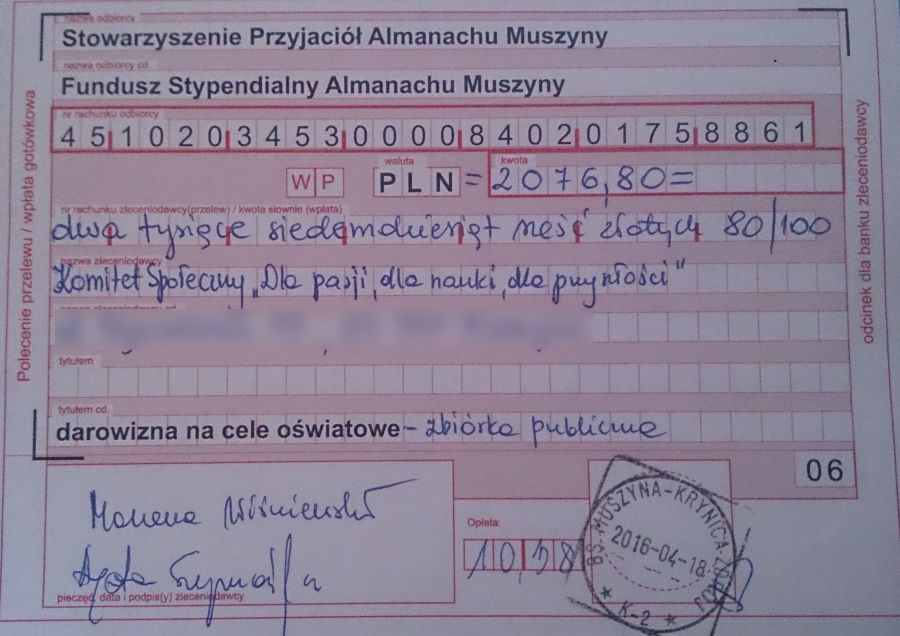 nazwa odbiorcy
Stowarzyszenie Przyjaciół Almanachu Muszyny
nazwa odbiorcy cd.
Fundusz Stypendialny Almanachu Muszyny
nr rachunku odbiorcy
45102034530000840201758861
waluta kwota
WP PLN = 2076,80=
nr rachunku zleceniodawcy(przelew) / kwota słownie (wpłata)
dwa tysiące siedemdziesiąt sześć złotych 80/100
nazwa zleceniodawcy
Komitet Społeczny „Dla pasji, dla nauki, dla przyszłości"
nazwa zleceniodawcy cd.
tytułem
tytułem cd.
darowizna na cele oświatowe - zbiórka publiczna
06
Opłata:
10,38
BS MUSZYNA-KRYNICA-ZDRÓJ
2016-04-18
K-2
pieczęć, data i podpis(y) zleceniodawcy
Polecenie przelewu / wpłata gotówkowa
odcinek dla banku zleceniodawcy